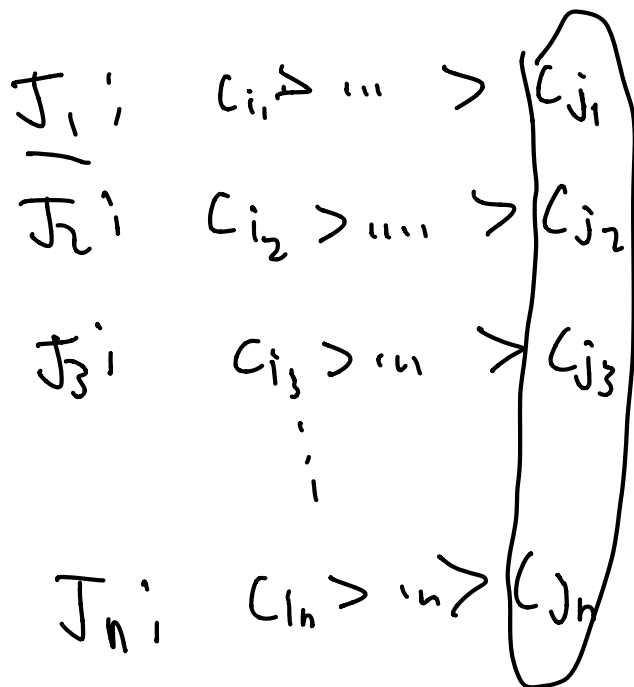 J₁: C_{i₁} > ... > C_{j₁}
J₂: C_{i₂} > .... > C_{j₂}
J₃: C_{i₃} > ... > C_{j₃}
⋮
Jₙ: C_{iₙ} > ... > C_{jₙ}